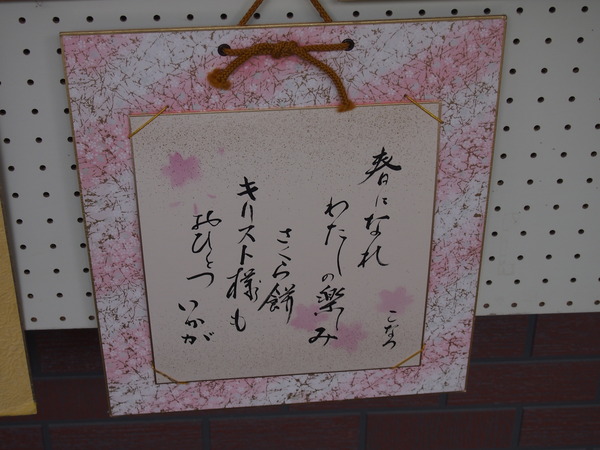 春になれ
わたしの楽しみ
さくら餅
キリスト様も
おひとついかが
こなつ